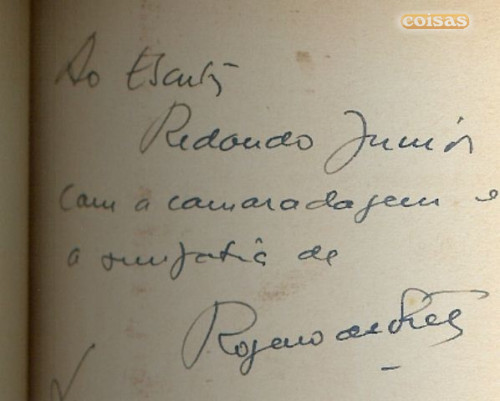 coisas
Ao Escritor
Redondo Junior
com a camaradagem e
a simpatia de
Rogerio de Freitas